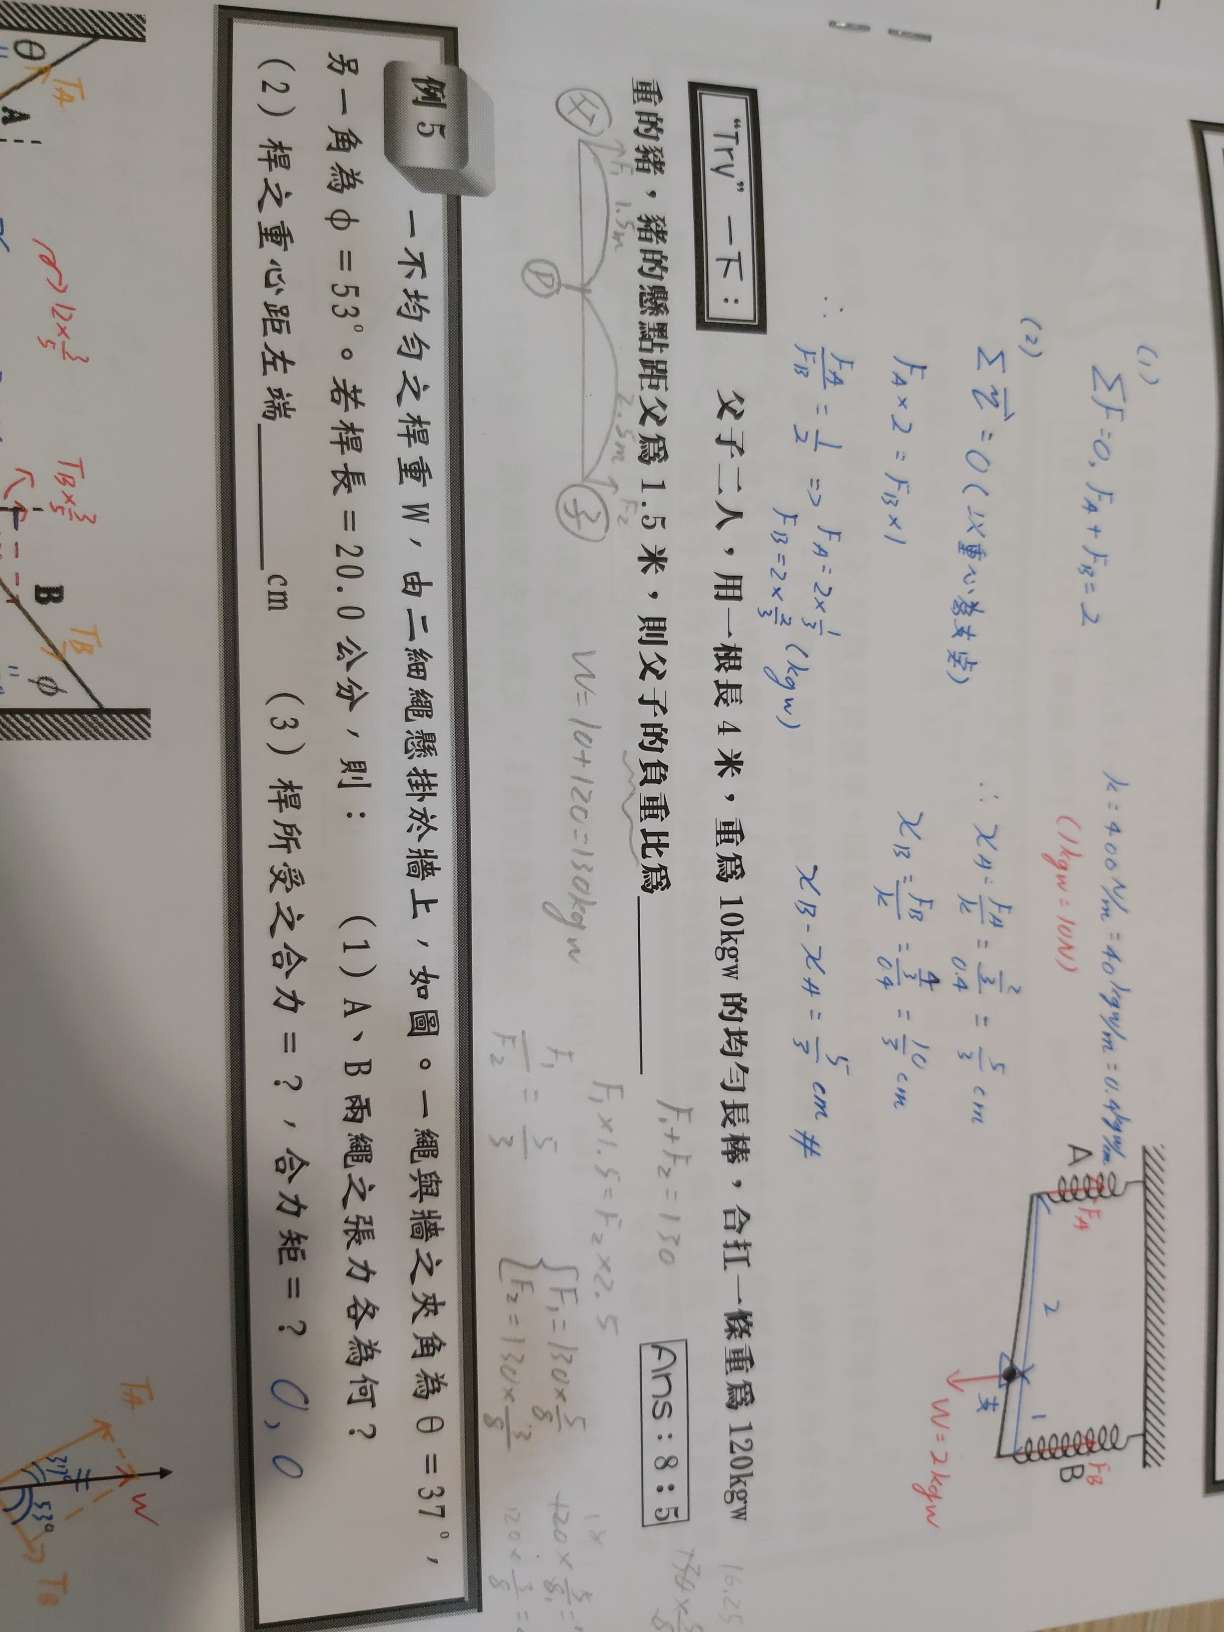 (1)
ΣF=0, FA+FB=2
k=400N/m=40kgw/m=0.4kgw/cm
(1kgw=10N)
(2)
Στ=0(以重心為支點)
FA×2=FB×1
∴ FA/FB=1/2 ⇒ FA=2×1/3
FB=2×2/3 (kgw)
∴ XA=FA/k=(2/3)/0.4=5/3 cm
XB=FB/k=(4/3)/0.4=10/3 cm
XB-XA=5/3 cm #
A
B
FA
FB
2
1
支
W=2kgw
"Try"一下:
父子二人,用一根長4米,重為10kgw的均勻長棒,合扛一條重為120kgw
重的豬,豬的懸點距父為1.5米,則父子的負重比為________
Ans:8:5
父
F1
1.5m
D
2.5m
F2
子
W=10+120=130kgw
F1+F2=130
F1×1.5=F2×2.5
F1/F2=5/3
{F1=130×5/8
{F2=130×3/8
16.25
例5
一不均勻之桿重W,由二細繩懸掛於牆上,如圖。一繩與牆之夾角為θ=37°,
另一角為φ=53°。若桿長=20.0公分,則: (1)A、B兩繩之張力各為何?
(2)桿之重心距左端________cm (3)桿所受之合力=?,合力矩=? 0,0
θ
TA
A
B
TB
φ
TB×3/5
TA
W
37°
53°
TB